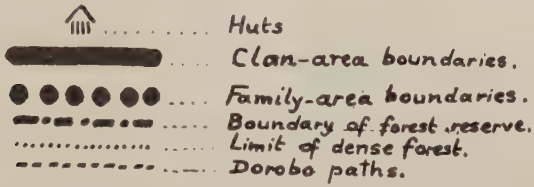 Huts
Clan-area boundaries.
Family-area boundaries.
Boundary of forest reserve.
Limit of dense forest.
Dorobo paths.